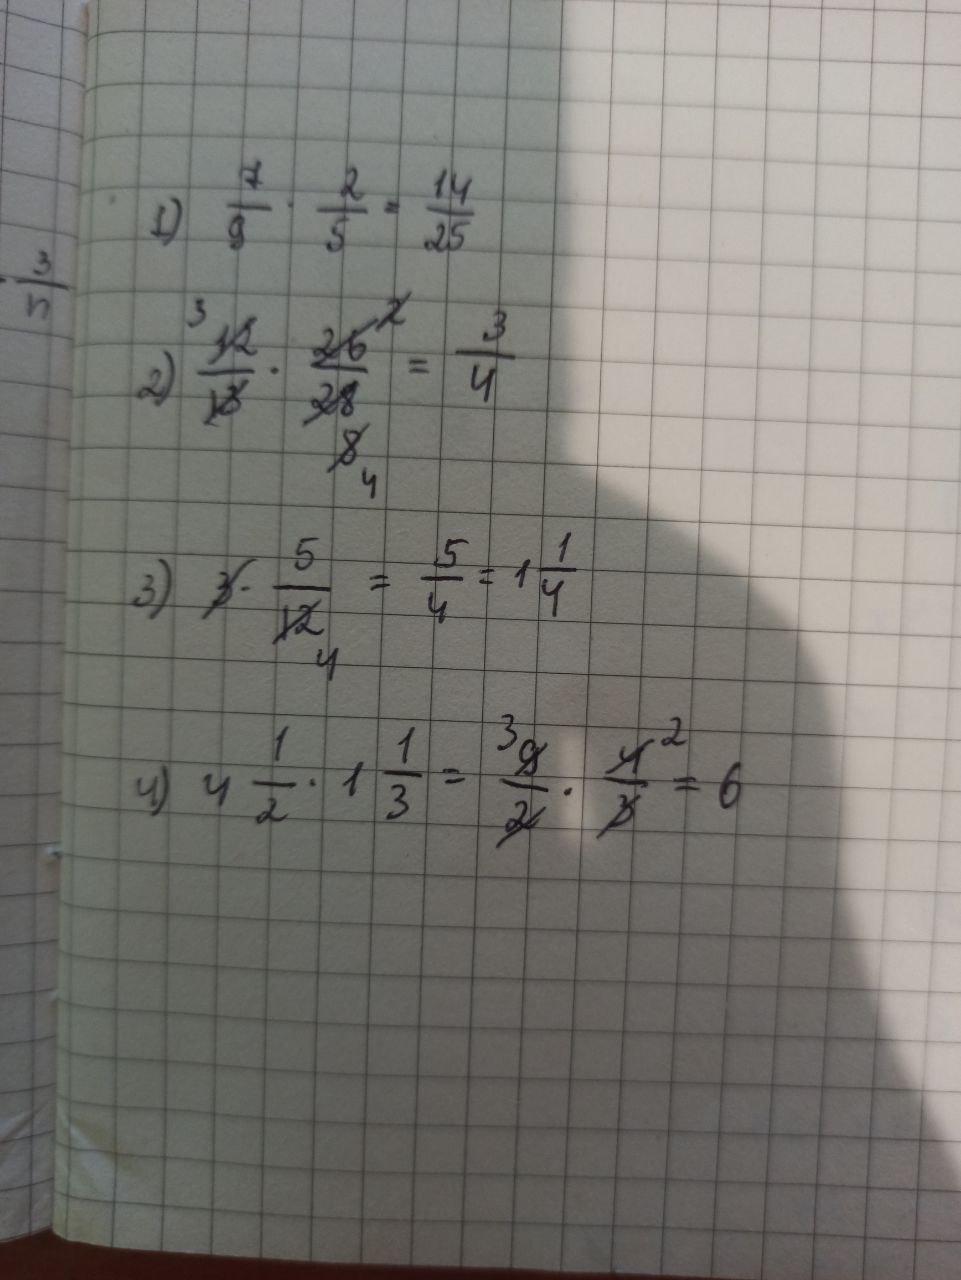 3/5
1) 7/9 · 2/5 = 14/25
2) 3 12/13 · 26/28 2 8 4 = 3/4
3) 3 · 5/12 4 = 5/4 = 1 1/4
4) 4 1/2 · 1 1/3 = 3 9/2 · 4/3 2 = 6